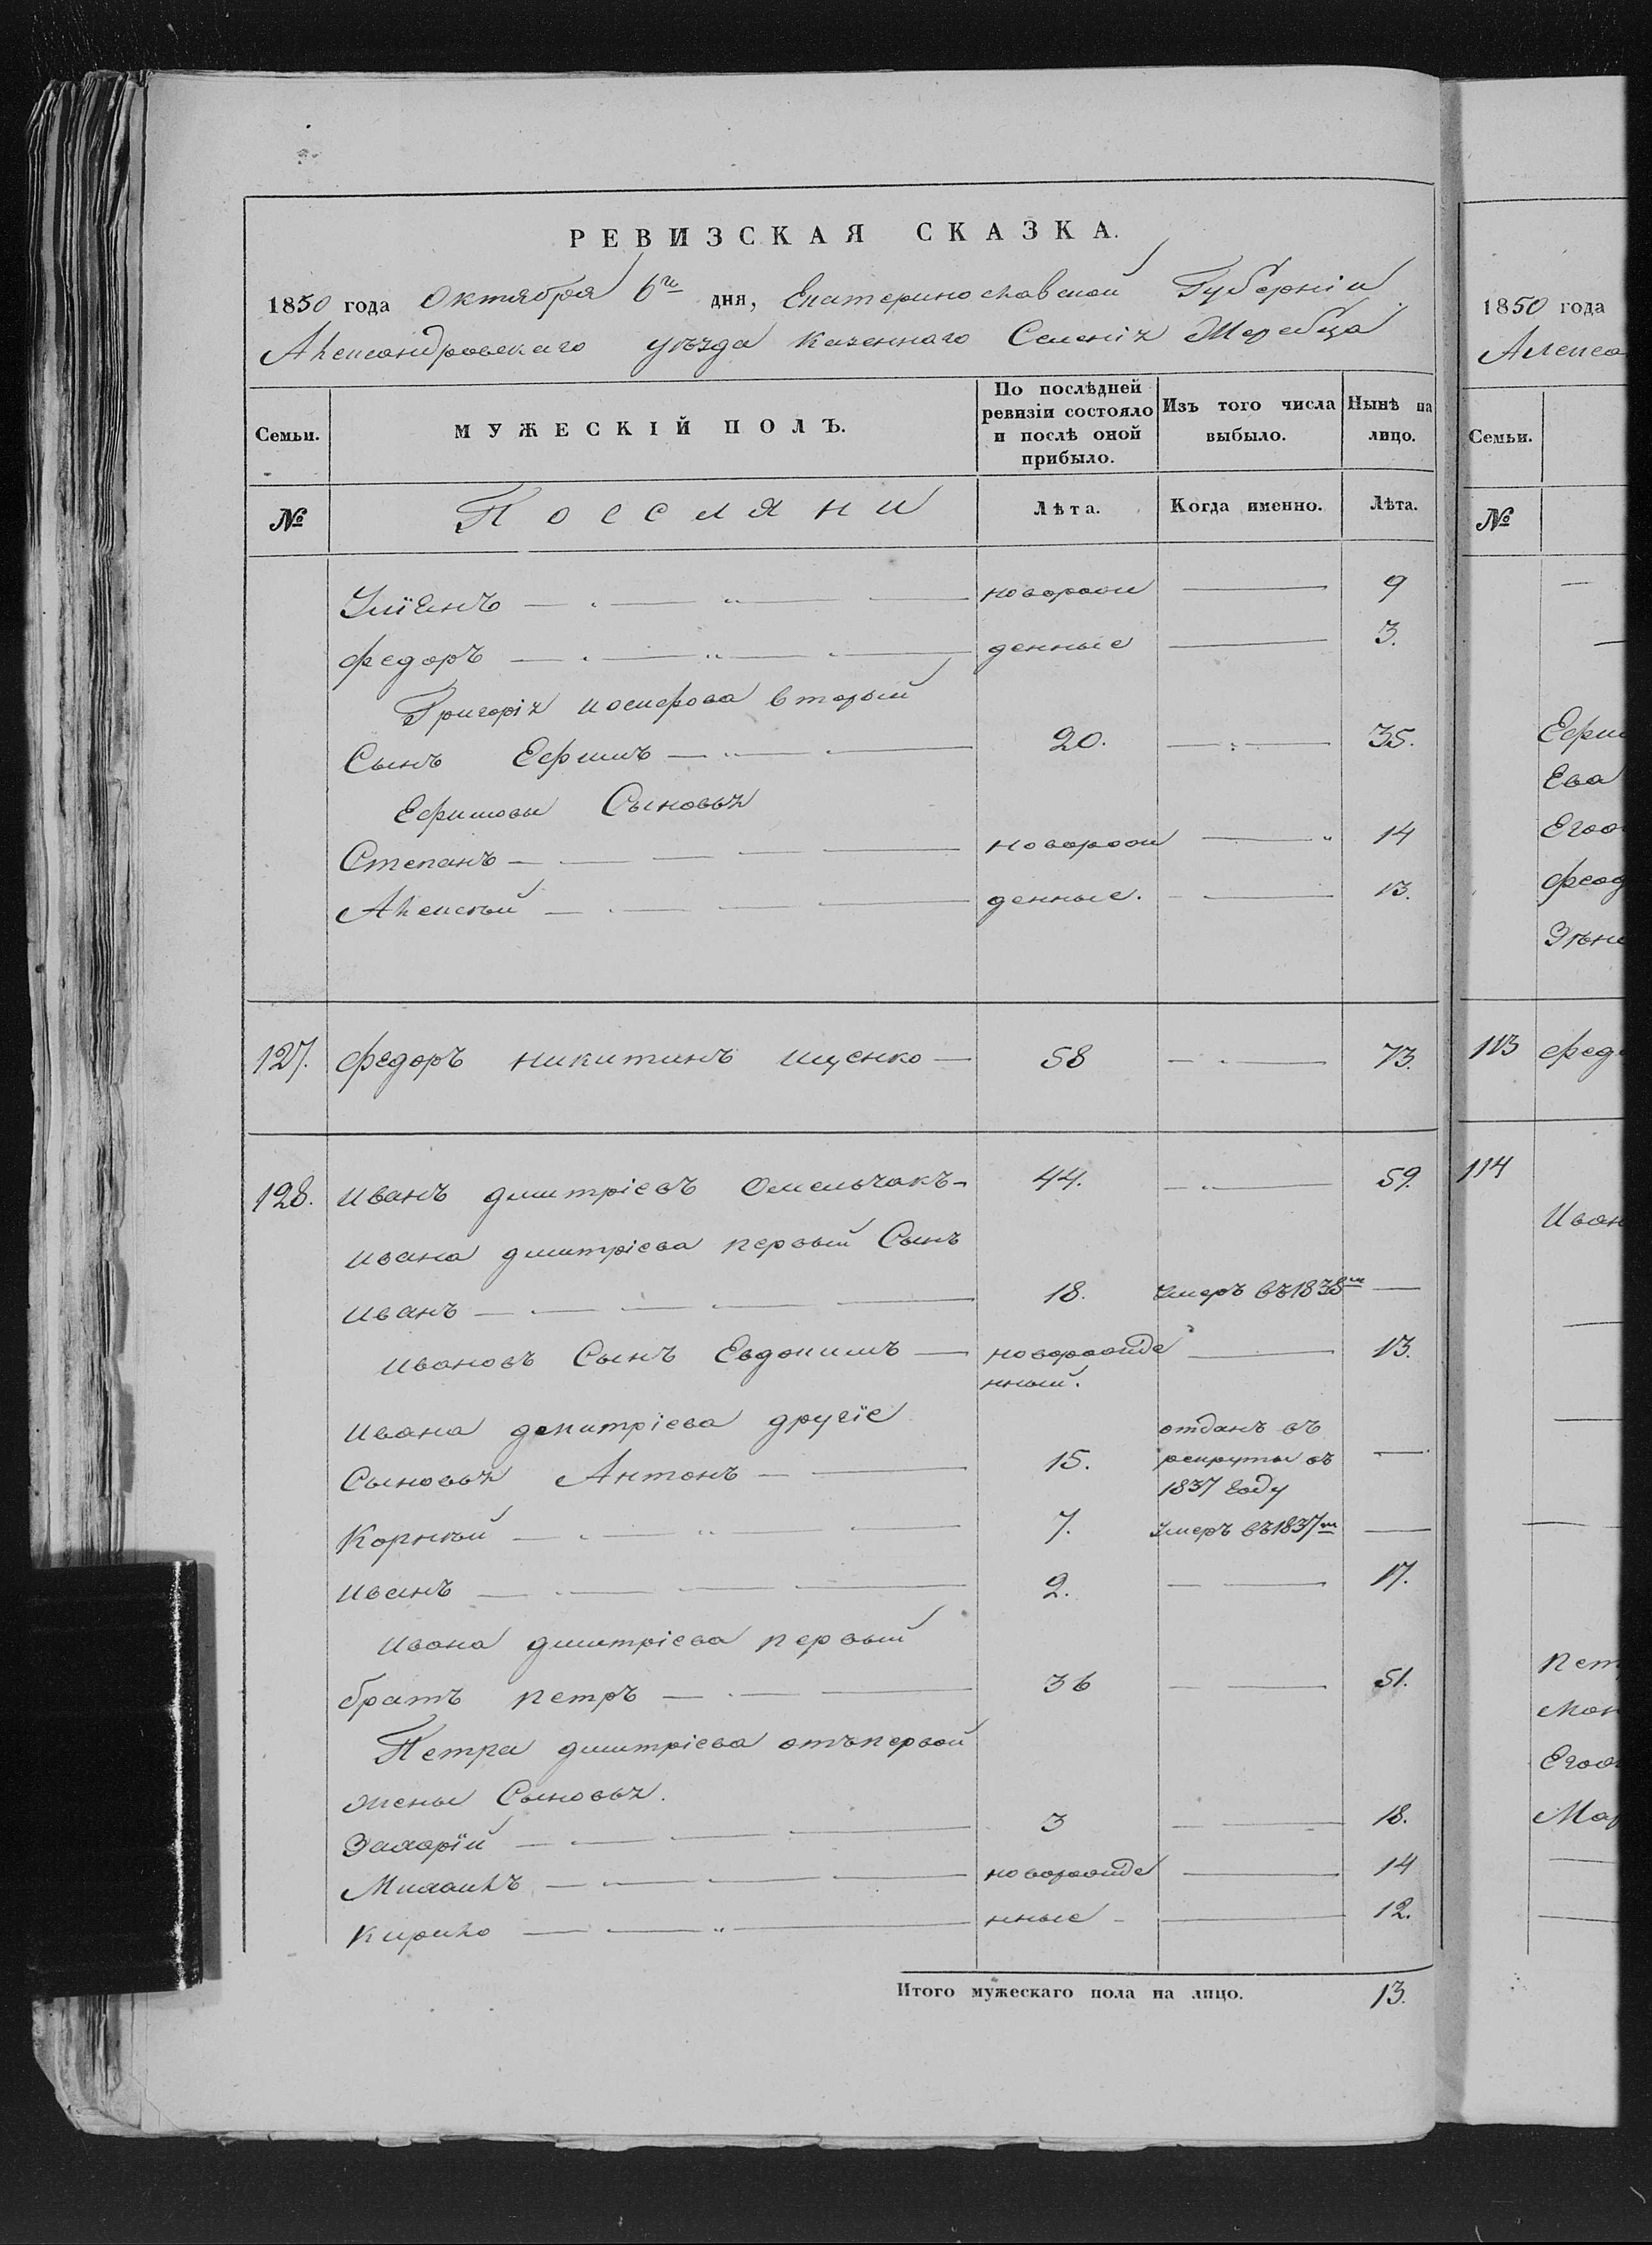 РЕВИЗСКАЯ СКАЗКА.
1850 года Октября 6го дня, Екатеринославской Губерніи
Александровскаго уѣзда казеннаго Селенія Жеребца
Семьи. МУЖЕСКІЙ ПОЛЪ. По послѣдней ревизіи состояло и послѣ оной прибыло. Изъ того числа выбыло. Нынѣ на лицо.
№ Поселяни Лѣта. Когда именно. Лѣта.
новорож 9
Федоръ денные 3.
Григорія Иосифова вторый
Сынъ Ефимъ 20. 35.
Ефимовы Сыновья
Степанъ новорож 14
Алексѣй денные. 13.
127. Федоръ Никитинъ Ищенко 58 73.
128. Иванъ Дмитріевъ Омельчакъ 44. 59.
Ивана Дмитріева первый Сынъ
Иванъ 18. Умеръ въ 1838м
Ивановъ Сынъ Евдокимъ новорожде 13.
нный.
Ивана Дмитріева другіе
Сыновья Антонъ 15. отданъ въ
рекруты въ
1837 Году
Корнѣй 7. Умеръ въ 1837м
Иванъ 2. 17.
Ивана Дмитріева первый
братъ Петръ 36 51.
Петра Дмитріева отъ первой
жены Сыновья.
Захарій 3 18.
Михаилъ новорожде 14
Кирило нные 12.
Итого мужескаго пола на лицо. 13.
1850 года
Алекса
Семьи.
№
Ефим
Ева
Его
Феод
113 Фед
114
Иван
Пет
Его
Мар